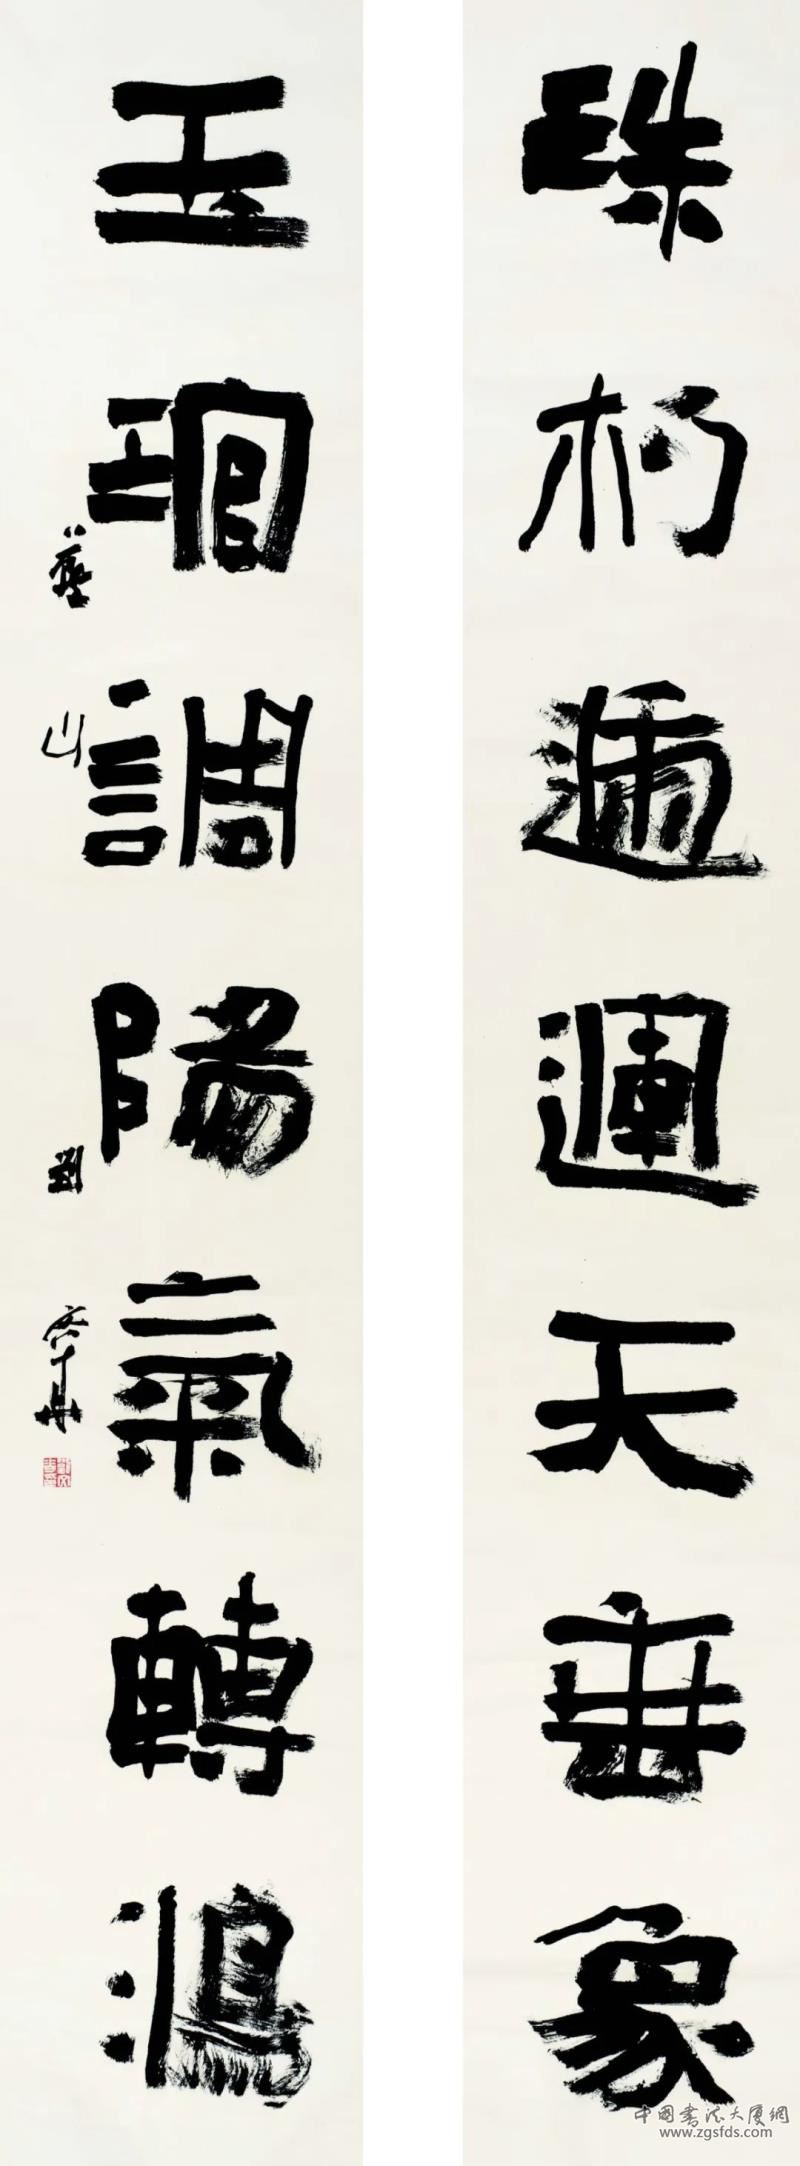 珠杓遞運天垂象
玉琯調陽氣轉鴻
山 劉文華
中國書法大厦網
www.zgsfds.com